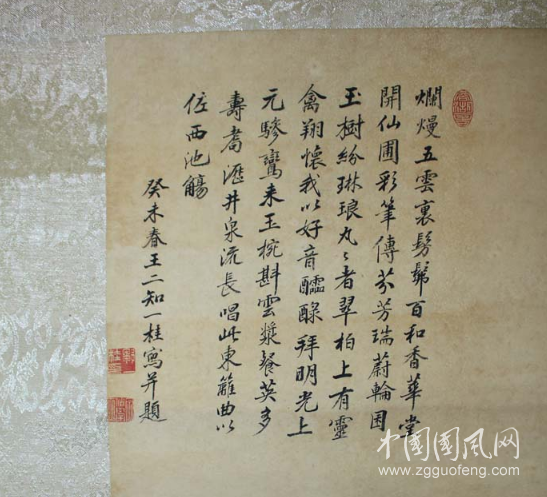 爛熳五雲裏髣髴百和香華堂
開仙圃彩筆傳芬芳瑞蔚輪囷
玉樹紛琳琅丸〻者翠柏上有靈
禽翔懷我以好音醽醁拜明光上
元驂鸞来玉椀斟雲漿餐英多
壽井泉流長唱此東籬曲以
佐西池觴
癸未春王二知一桂寫并題
中國國风网
www.zgguofeng.com